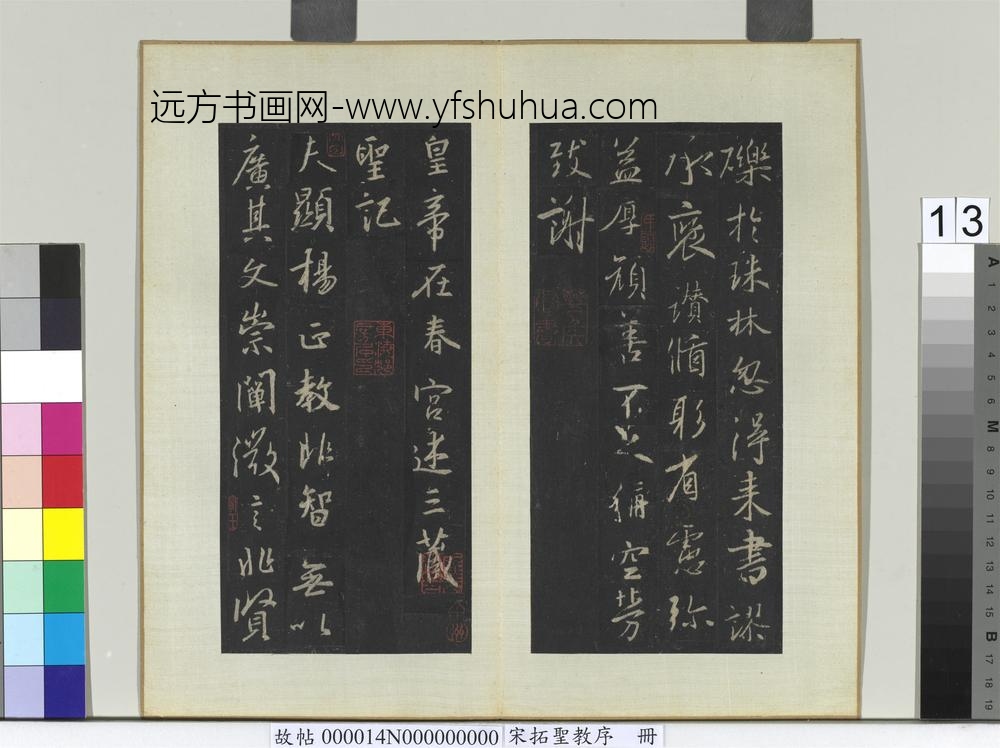 远方书画网-www.yfshuhua.com
礫於珠林忽得来書謬
承褒讚脩躬省慮弥
益厚顔善不足稱空勞
致謝
皇帝在春宮述三藏
聖記
夫顯揚正教非智無以
廣其文崇闡微言非賢
13
A
1
2
3
4
5
6
M
8
9
10
11
12
13
14
15
B
17
18
19
故帖 000014N000000000 宋拓聖教序 冊